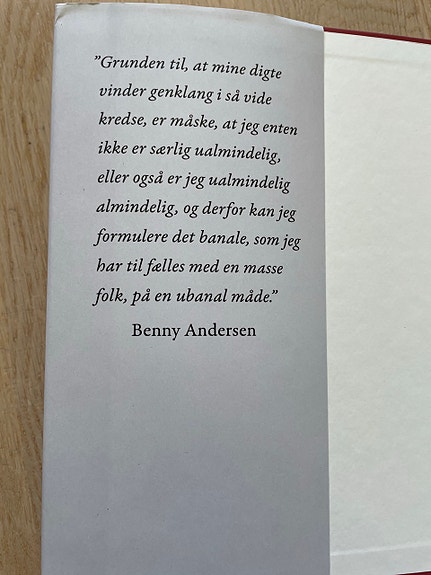 ”Grunden til, at mine digte
vinder genklang i så vide
kredse, er måske, at jeg enten
ikke er særlig ualmindelig,
eller også er jeg ualmindelig
almindelig, og derfor kan jeg
formulere det banale, som jeg
har til fælles med en masse
folk, på en ubanal måde.”
Benny Andersen